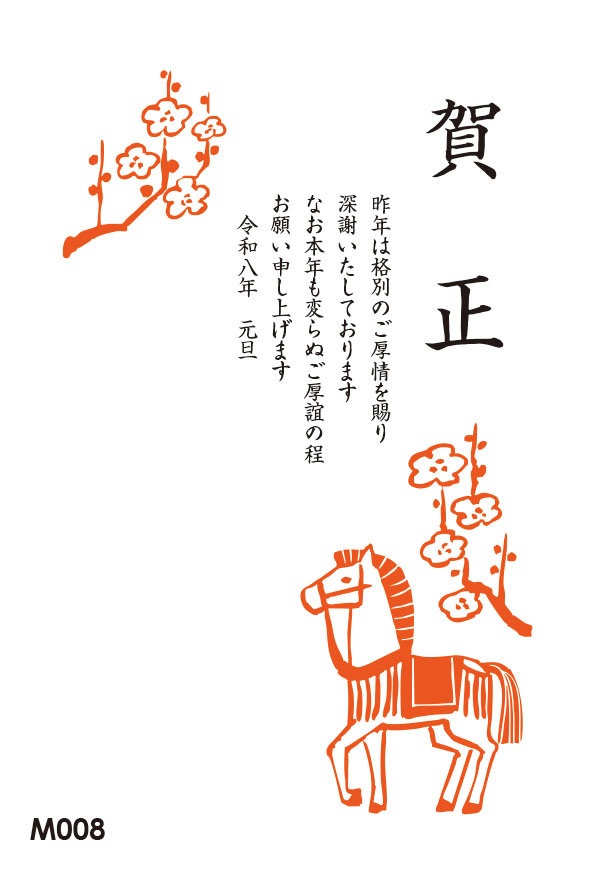 賀正
昨年は格別のご厚情を賜り
深謝いたしております
なお本年も変らぬご厚誼の程
お願い申し上げます
令和八年　元旦
M008